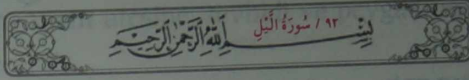 ٩٢ / سُورَةُ الَّيْلِ
بِسْمِ اللّٰهِ الرَّحْمٰنِ الرَّحِيْمِ